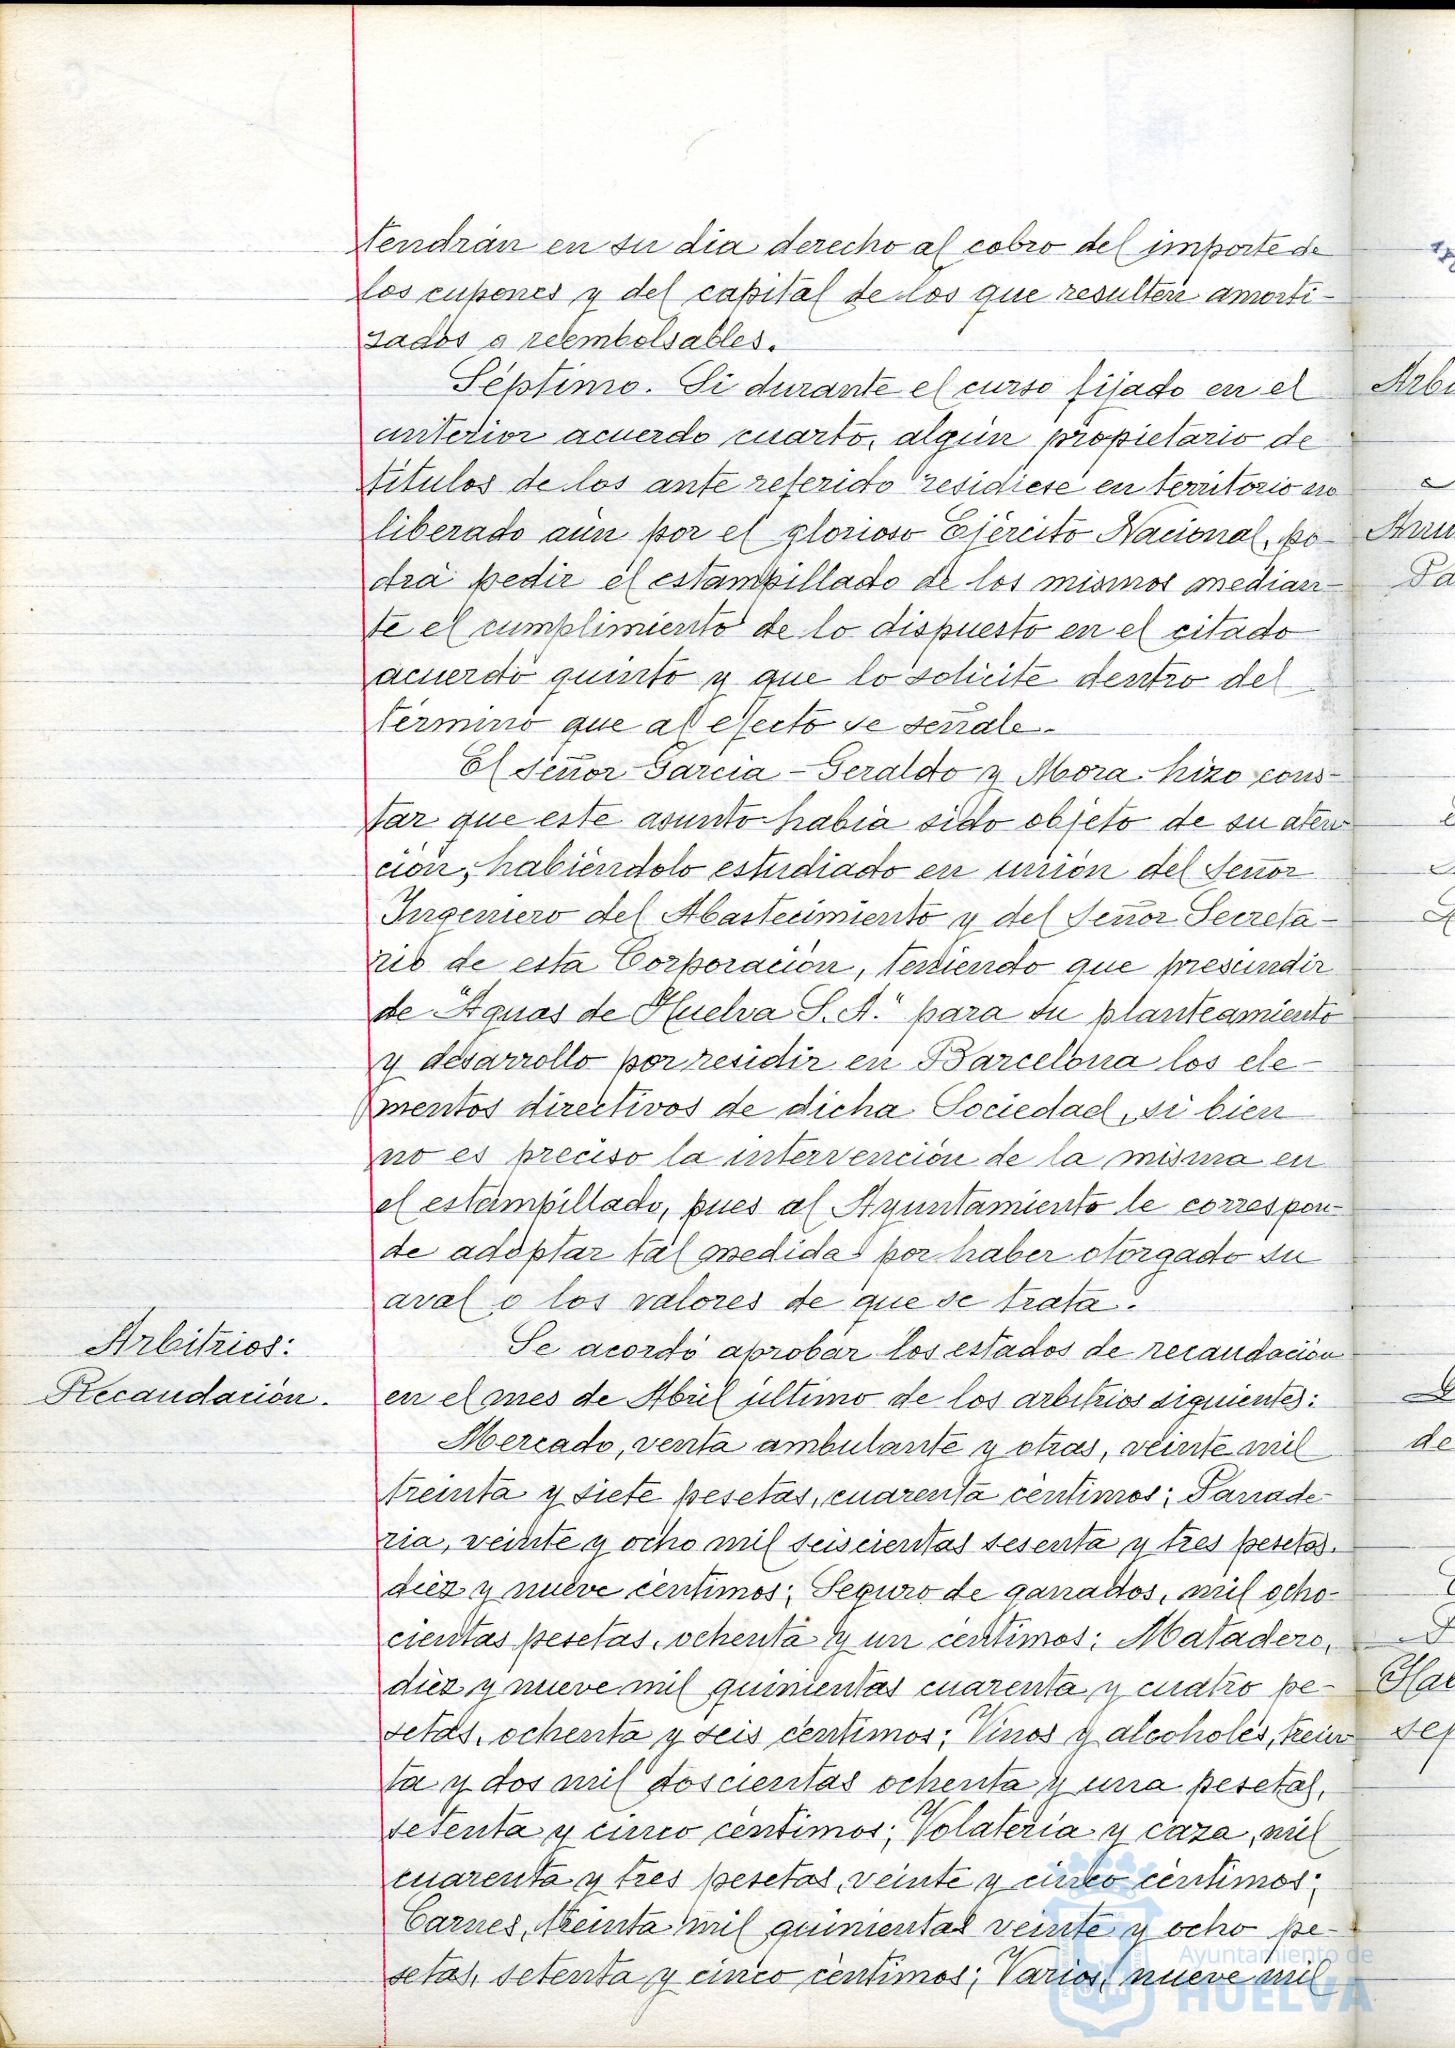 tendrán en su dia derecho al cobro del importe de
los cupones y del capital de los que resulten amorti-
zados o reembolsables.
Séptimo. Si durante el curso fijado en el
anterior acuerdo cuarto, algún propietario de
titulos de los ante referido residiese en territorio no
liberado aún por el glorioso Ejército Nacional, po-
drá pedir el estampillado de los mismos median-
te el cumplimiento de lo dispuesto en el citado
acuerdo quinto y que lo solicite dentro del
término que al efecto se señale.
El Señor Garcia-Geraldo y Mora hizo cons-
tar que este asunto habia sido objeto de su aten-
ción, habiéndolo estudiado en unión del Señor
Ingeniero del Abastecimiento y del Señor Secreta-
rio de esta Corporación, teniendo que prescindir
de "Aguas de Huelva S. A." para su planteamiento
y desarrollo por residir en Barcelona los ele-
mentos directivos de dicha Sociedad, si bien
no es preciso la intervención de la misma en
el estampillado, pues al Ayuntamiento le correspon-
de adoptar tal medida por haber otorgado su
aval a los valores de que se trata.
Arbitrios:
Recaudación.
Se acordó aprobar los estados de recaudación
en el mes de Abril último de los arbitrios siguientes:
Mercado, venta ambulante y otras, veinte mil
treinta y siete pesetas, cuarenta céntimos; Panade-
ria, veinte y ocho mil seiscientas sesenta y tres pesetas.
diez y nueve céntimos; Seguro de ganados, mil ocho-
cientas pesetas, ochenta y un céntimos; Matadero,
diez y nueve mil quinientas cuarenta y cuatro pe-
setas, ochenta y seis céntimos; Vinos y alcoholes, trein-
ta y dos mil doscientas ochenta y una pesetas,
setenta y cinco céntimos; Volateria y caza, mil
cuarenta y tres pesetas, veinte y cinco céntimos;
Carnes, treinta mil quinientas veinte y ocho pe-
setas, setenta y cinco céntimos; Varios, nueve mil
Ayuntamiento de
HUELVA